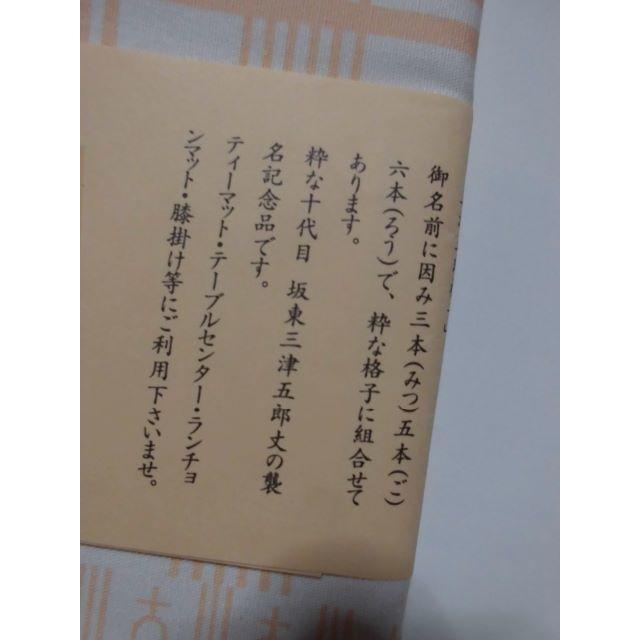 御名前に因み三本(みつ)五本(ご)
六本(ろう)で、粋な格子に組合せて
あります。
粋な十代目 坂東三津五郎丈の襲
名記念品です。
ティーマット・テーブルセンター・ランチョ
ンマット・膝掛け等にご利用下さいませ。